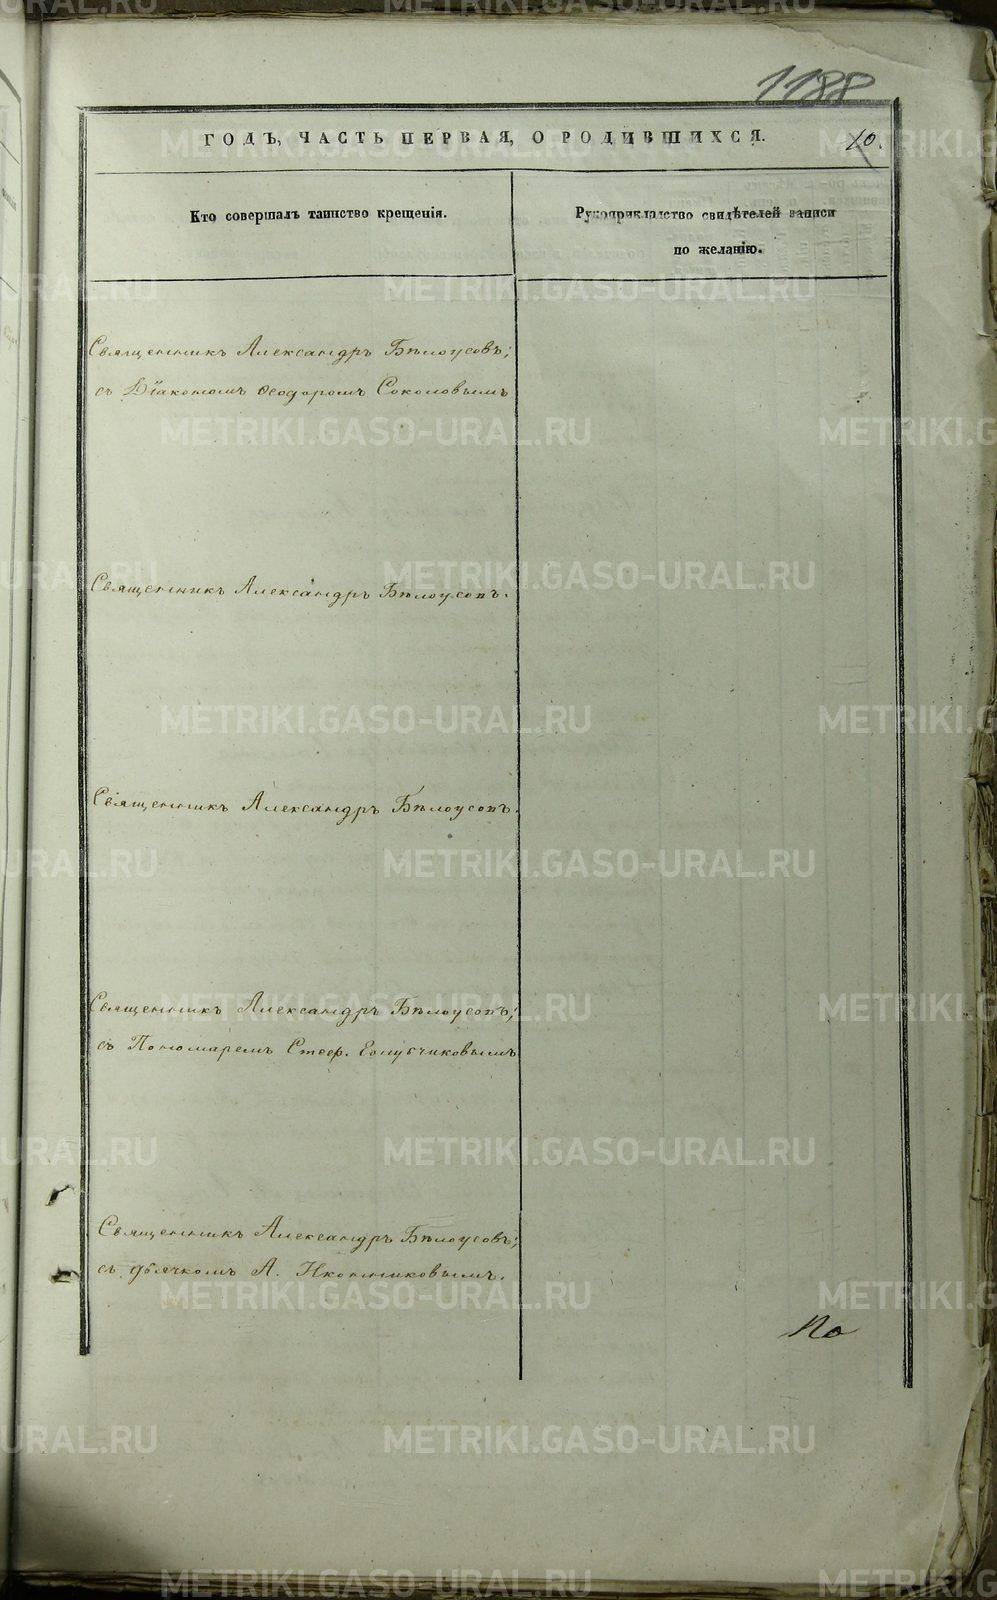 1188
ГОДЪ, ЧАСТЬ ПЕРВАЯ, О РОДИВШИХСЯ. 10.
Кто совершалъ таинство крещенія.
Рукоприкладство свидѣтелей записи
по желанію.
Священникъ Александръ Бѣлоусовъ;
съ Діакономъ Ѳеодоромъ Соколовымъ
Священникъ Александръ Бѣлоусовъ.
Священникъ Александръ Бѣлоусовъ.
Священникъ Александръ Бѣлоусовъ;
съ Пономаремъ Стеф. Голубчиковымъ
Священникъ Александръ Бѣлоусовъ;
съ дьячкомъ А. Иконниковымъ.
По
METRIKI.GASO-URAL.RU